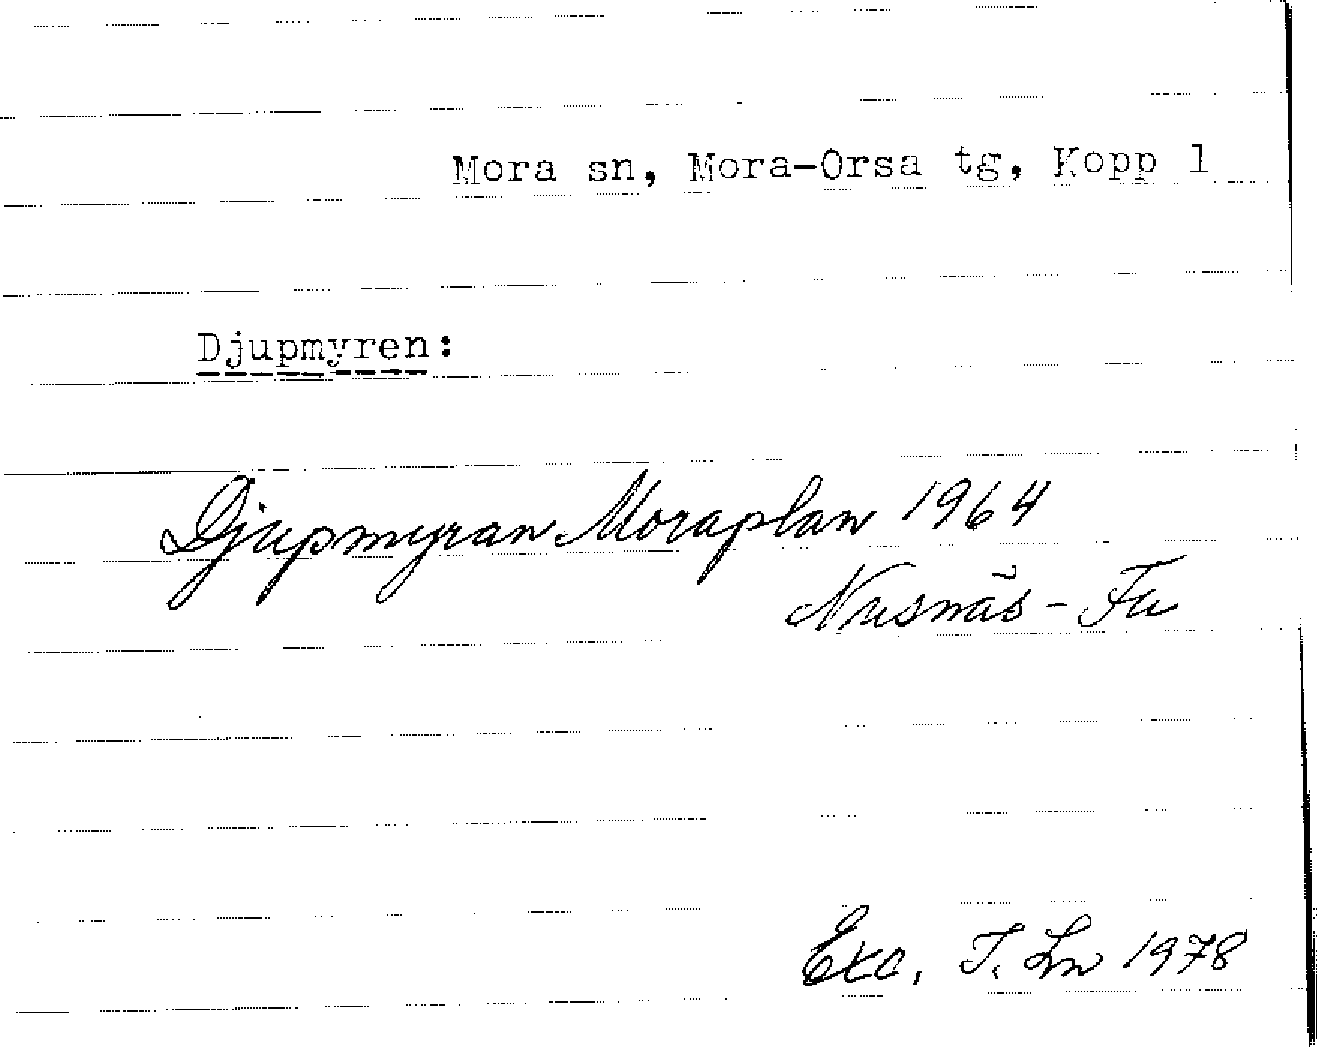 Mora sn, Mora-Orsa tg, Kopp l
Djupmyren:
Djupmyran Moraplan 1964
Nusnäs - Fu
Exc, T. Ln 1978